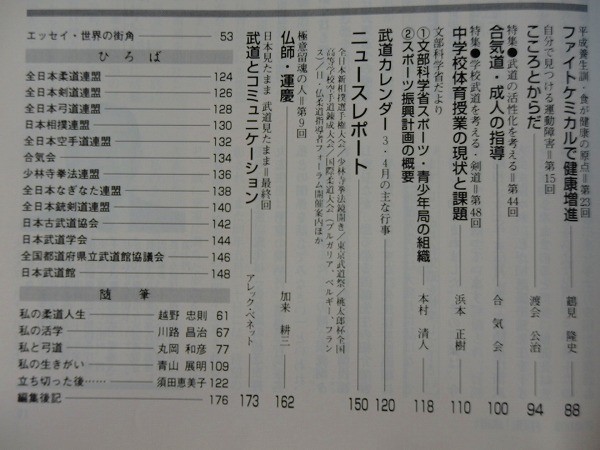 平成養生訓・食が健康の原点＝第23回
ファイトケミカルで健康増進 鶴見 隆史 88
自分で見つける運動障害＝第15回
こころとからだ 渡会 公治 94
特集●武道の活性化を考える＝第44回
合気道・成人の指導 合気会 100
特集●学校武道を考える・剣道＝第48回
中学校体育授業の現状と課題 浜本 正樹 110
文部科学省だより
①文部科学省スポーツ・青少年局の組織
②スポーツ振興計画の概要 本村 清人 118
武道カレンダー 3・4月の主な行事 120
ニュースレポート 150
全日本新相撲選手権大会／少林寺拳法鏡開き／東京武道祭／桃太郎杯全国
高等学校空手道錬成大会／国際柔道大会（ブルガリア、ベルギー、フラン
ス）／日・仏柔道指導者フォーラム開催案内ほか
極意留魂の人＝第9回
仏師・運慶 加来 耕三 162
日本見たまま 武道見たまま＝最終回
武道とコミュニケーション アレック・ベネット 173
エッセイ・世界の街角 53
ひろば
全日本柔道連盟 124
全日本剣道連盟 126
全日本弓道連盟 128
日本相撲連盟 130
全日本空手道連盟 132
合気会 134
少林寺拳法連盟 136
全日本なぎなた連盟 138
全日本銃剣道連盟 140
日本古武道協会 142
日本武道学会 144
全国都道府県立武道館協議会 146
日本武道館 148
随筆
私の柔道人生 越野 忠則 61
私の活学 川路 昌治 67
私と弓道 丸岡 和彦 77
私の生きがい 青山 展明 109
立ち切った後…… 須田恵美子 122
編集後記 176